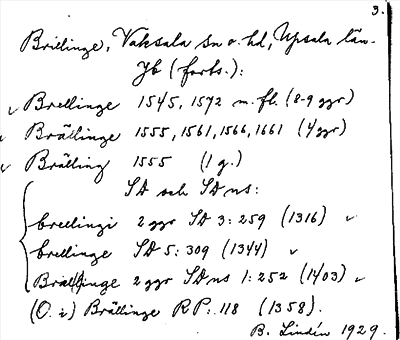 3.
Brillinge, Vaksala sn o. hd, Upsala län.
Jb (forts.):
Brellinge 1545, 1572 m. fl. (8-9 ggr)
Brällinge 1555, 1561, 1566, 1661 (4 ggr)
Brälling 1555 (1 g.)
SD och SD ns:
brellingi 2 ggr SD 3: 259 (1316)
brellinge SD 5: 309 (1344)
Brællinge 2 ggr SD ns 1: 252 (1403)
(O. i) Brällinge RP: 118 (1358).
B. Lindén 1929.